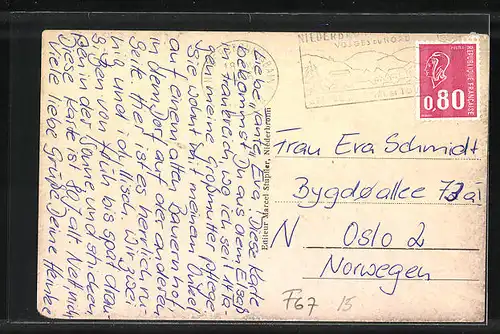 Liebe Tante Eva! Diese Karte
bekommst Du aus dem Elsaß
wo ich seit
Tagen meine Großmutter pflege
Sie wohnt mit meinem Onkel
auf einem alten Bauernhof
a. Dorf auf der anderen
Seite. Hier ist es herrlich ru-
hig und idyllisch. Wir
von früh bis spät drau-
ßen in der Sonne und stricken
Diese Karte ist 80J alt. Nett nich
Viele liebe Grüße Deine Henrike
Editeur Marcel Stupfler, Niederbronn
NIEDERBRONN
VOSGES DU NORD
REPUBLIQUE FRANÇAISE
0,80
Frau Eva Schmidt
Bygdøallee
N Oslo 2
Norwegen
F67 15